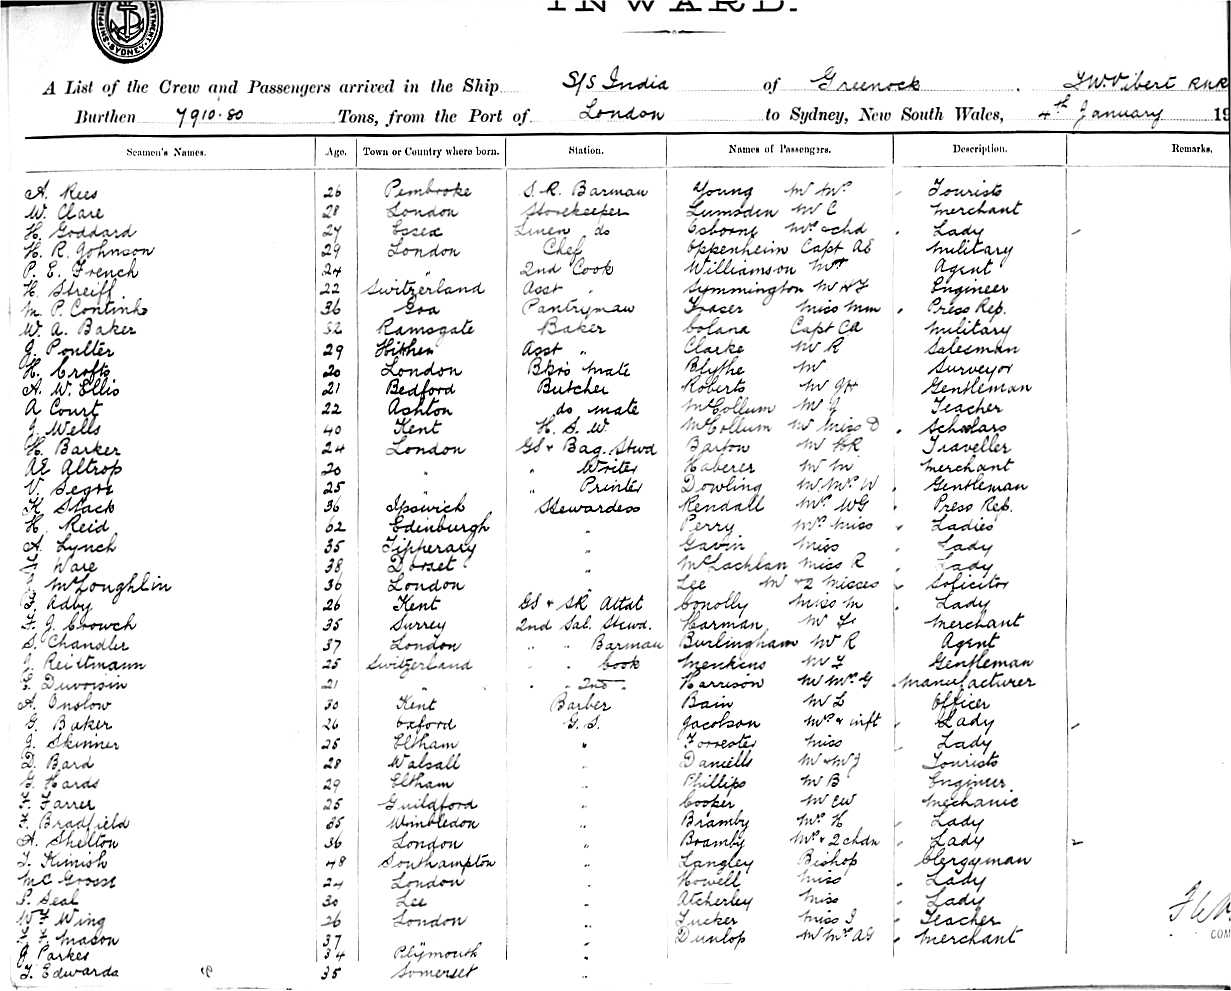 SHIPPING DEPARTMENT SYDNEY
INWARD.
A List of the Crew and Passengers arrived in the Ship S/S India of Greenock. F W Vibert RNR
Burthen 7910.80 Tons, from the Port of London to Sydney, New South Wales, 4th January 19
Seamen's Names. Age. Town or Country where born. Station. Names of Passengers. Description. Remarks.
A. Rees 26 Pembroke S.R. Barman Young Mr Mrs Tourists
W. Clare 28 London Storekeeper Lumsden Mr C Merchant
H. Goddard 27 Essex Linen do Osborne Mrs & chd Lady
H. R. Johnson 29 London Chef Oppenheim Capt AE Military
P. E. French 24 " 2nd Cook Williamson Mr Agent
H. Streiff 22 Switzerland Asst " Symmington Mr Engineer
M. P. 36 Goa Pantryman Fraser Miss Press Rep.
W. A. Baker 32 Ramsgate Baker Colana Capt Military
J. Poulter 29 Hitchen Asst " Clarke Mr R Salesman
H. Crofts 20 London Bkrs Mate Blythe Mr Surveyor
A. W. Ellis 21 Bedford Butcher Roberts Mr Gentleman
A Court 22 Ashton do mate McCollum Mr J Teacher
J. Wells 40 Kent H. S. W. McCollum Mr Miss D Scholars
H. Barker 24 London GS & Bag. Stwd Barton Mr Traveller
AE Altrop 20 " " Writer Haberer Mr M Merchant
V. Segre 25 " " Printer Dowling Mr Mrs W Gentleman
K. Stack 36 Ipswich Stewardess Kendall Mrs WG Press Rep.
H. Reid 62 Edinburgh " Perry Mrs Miss Ladies
A. Lynch 35 Tipperary " Gavin Miss Lady
Ware 38 Dorset " McLachlan Miss R Lady
McLoughlin 36 London " Lee Mr & 2 Misses Solicitor
Adby 26 Kent GS & SR Attdt Conolly Miss M Lady
J. Crowch 35 Surrey 2nd Sal. Stewd. Harman Mr Merchant
S. Chandler 37 London " " Barman Burlingham Mr R Agent
J. Reitmann 25 Switzerland " " Cook Menkins Mr Gentleman
Duvoisin 21 " " " 2nd " Harrison Mr Mrs G Manufacturer
A. Onslow 30 Kent Barber Bain Mr L Officer
G. Baker 26 Oxford G.S. Jacobson Mrs & inft Lady
J. Skinner 25 Eltham " Forrester Miss Lady
D. Bard 28 Walsall " Daniells Mr & Mrs Tourists
Hards 29 Eltham " Phillips Mr B Engineer
Farrer 25 Guildford " Cooper Mr CW Mechanic
Bradfield 35 Wimbledon " Bramby Mrs H Lady
A. Shelton 36 London " Bramby Mrs & 2 chdn Lady 2
T. Kimish 48 Southampton " Langley Bishop Clergyman
24 London " Howell Miss Lady
P. Seal 30 Lee " Atcherley Miss Lady
Wing 26 London " Tucker Miss I Teacher
Mason 37 " Dunlop Mr Mrs AG Merchant COM
J. Parkes 34 Plymouth "
T. Edwards 35 Somerset "